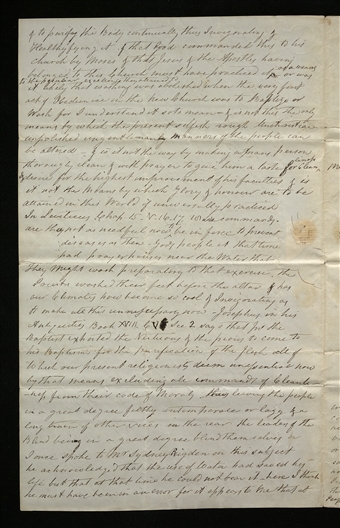 & to purify this Body continually thus Invigorating &
Healthyfying it if that God commanded this to his
church by Moses & that Jesus & the Apostles having
belonged to this Church must have practiced it or was
it likely that washing was abolished when the very first
act of Obedience in the New Church was to Baptize or
Wash for I understand it so to mean & is not this the only
means by which the present selfish rough
unpolished manners of the people can
be altered & is it not the way by making a person
thoroughly clean & with prayer to give him a taste for &
desire for the highest improvement of his faculties & is
it not the Means by which Glory & honour are to be
attained in this World if universally practiced
In Leviticus Chap 15 V 16.17 18 commands
are they not as needful now to be in force to prevent
diseases as then - God's people at that time
had prayer houses near the Water that
They Might wash preparatory to the exercise, the
Priests washed their feet before the altar & has
our Climate now become so cool & Invigorating as
to make all this unnecessary now Josephus in his
Antiquities Book XVIII C V Sec 2 says that John the
Baptist exhorted the Virtuous & the pious to come to
his Baptism for the purification of the flesh all of
Which our present religionists deem unessential now
by that means excluding all commands of Cleanli-
ness from their code of Morals thus leaving the people
in a great degree filthy or lazy & a
long time in the rear the leaders of the
Blind being in a great degree blind themselves
I once spoke to Mr Sydney Rigdon on this subject
he acknowledged that the use of Water had saved his
life but that at that time he could not bear it here I think
he must have been in an error for it appears to me that at